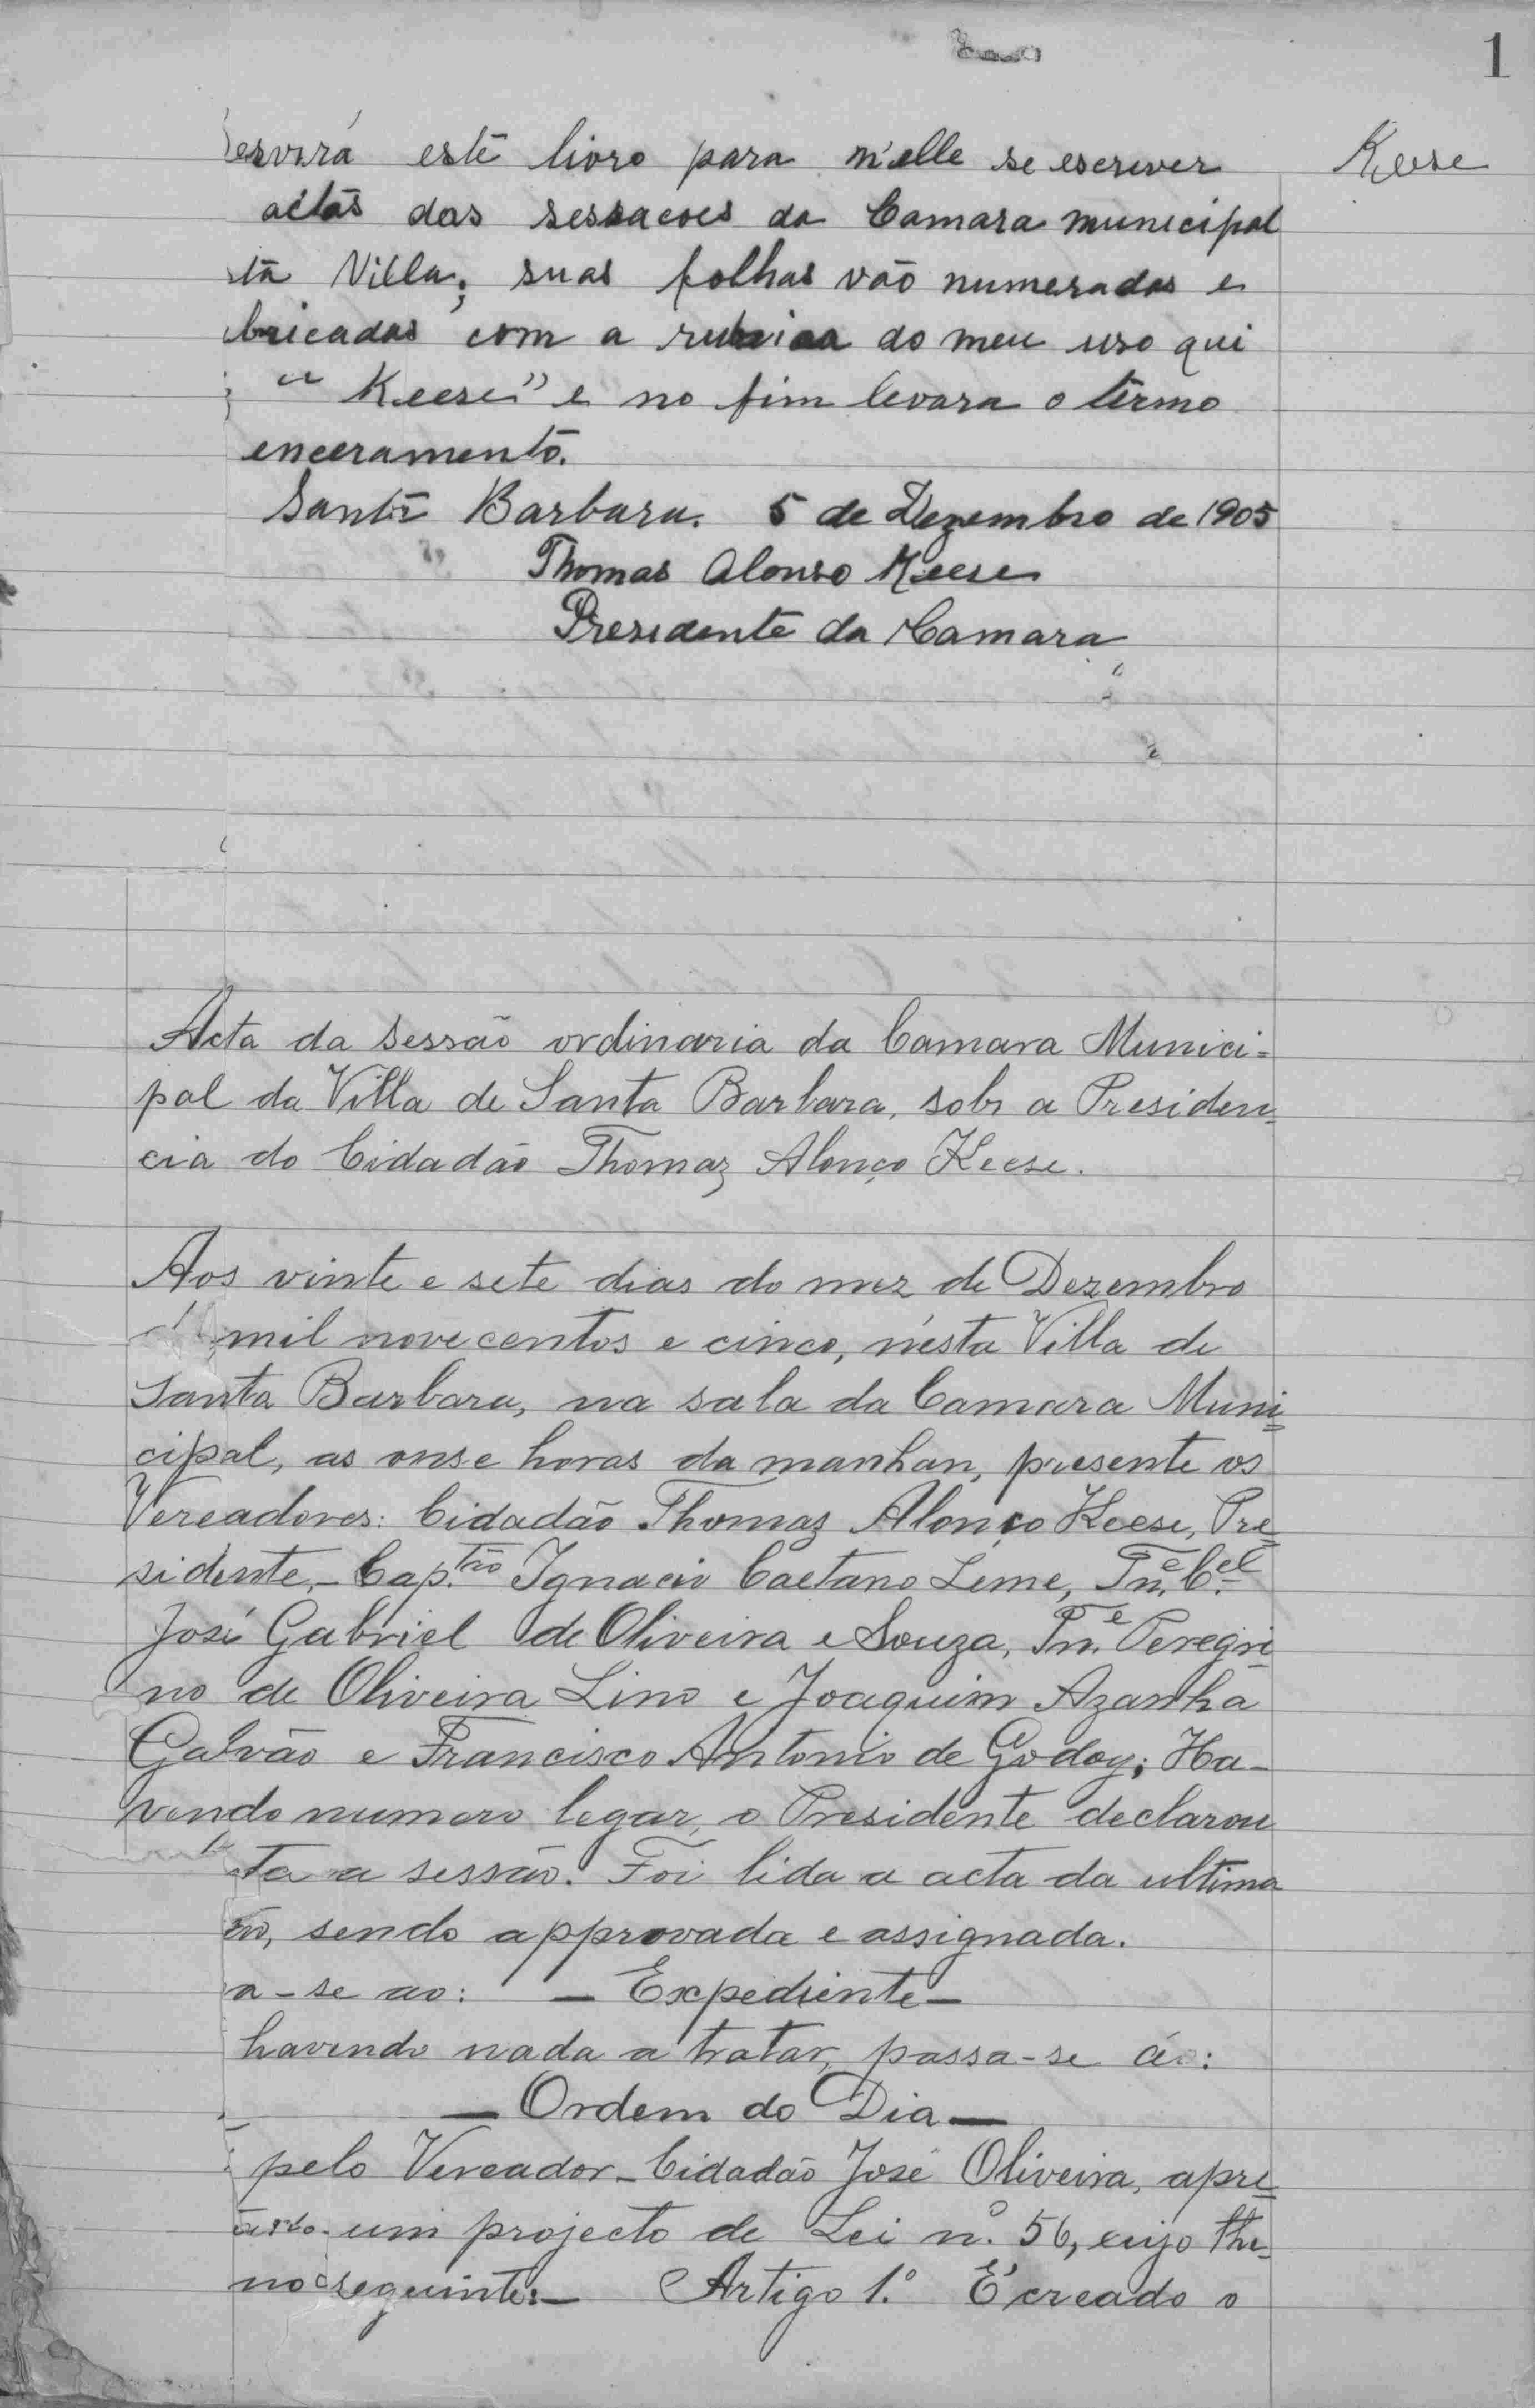 1
Keese
servirá este livro para n'elle se escrever
actas das sessacoes da Camara municipal
ta Villa; suas folhas vão numeradas e
bricadas com a rubrica do meu uso qui
"Keese" e no fim levara o termo
enceramento.
Santa Barbara. 5 de Dezembro de 1905
Thomas Alonso Keese
Presidente da Camara
Acta da sessão ordinaria da Camara Munici=
pal da Villa de Santa Barbara, sob a Presiden
cia do Cidadão Thomaz Alonço Keese.
Aos vinte e sete dias do mez de Dezembro
mil novecentos e cinco, n'esta Villa de
Santa Barbara, na sala da Camara Muni=
cipal, as onse horas da manhan, presente os
Vereadores: Cidadão Thomaz Alonço Keese, Pre=
sidente,- Cap.tão Ignacio Caetano Leme, Tn.e C.el
José Gabriel de Oliveira e Souza, Tn.e Peregri
no de Oliveira Lino e Joaquim Azanha
Galvão e Francisco Antonio de Godoy; Ha-
vendo numero legar, o Presidente declarou
ta a sessão. Foi lida a acta da ultima
ão, sendo approvada e assignada.
a-se ao: - Expediente -
havendo nada a tratar, passa-se á:
- Ordem do Dia -
pelo Vereador - Cidadão José Oliveira, apre=
um projecto de Lei nº. 56, cujo the-
no seguinte:- Artigo 1.º É creado o